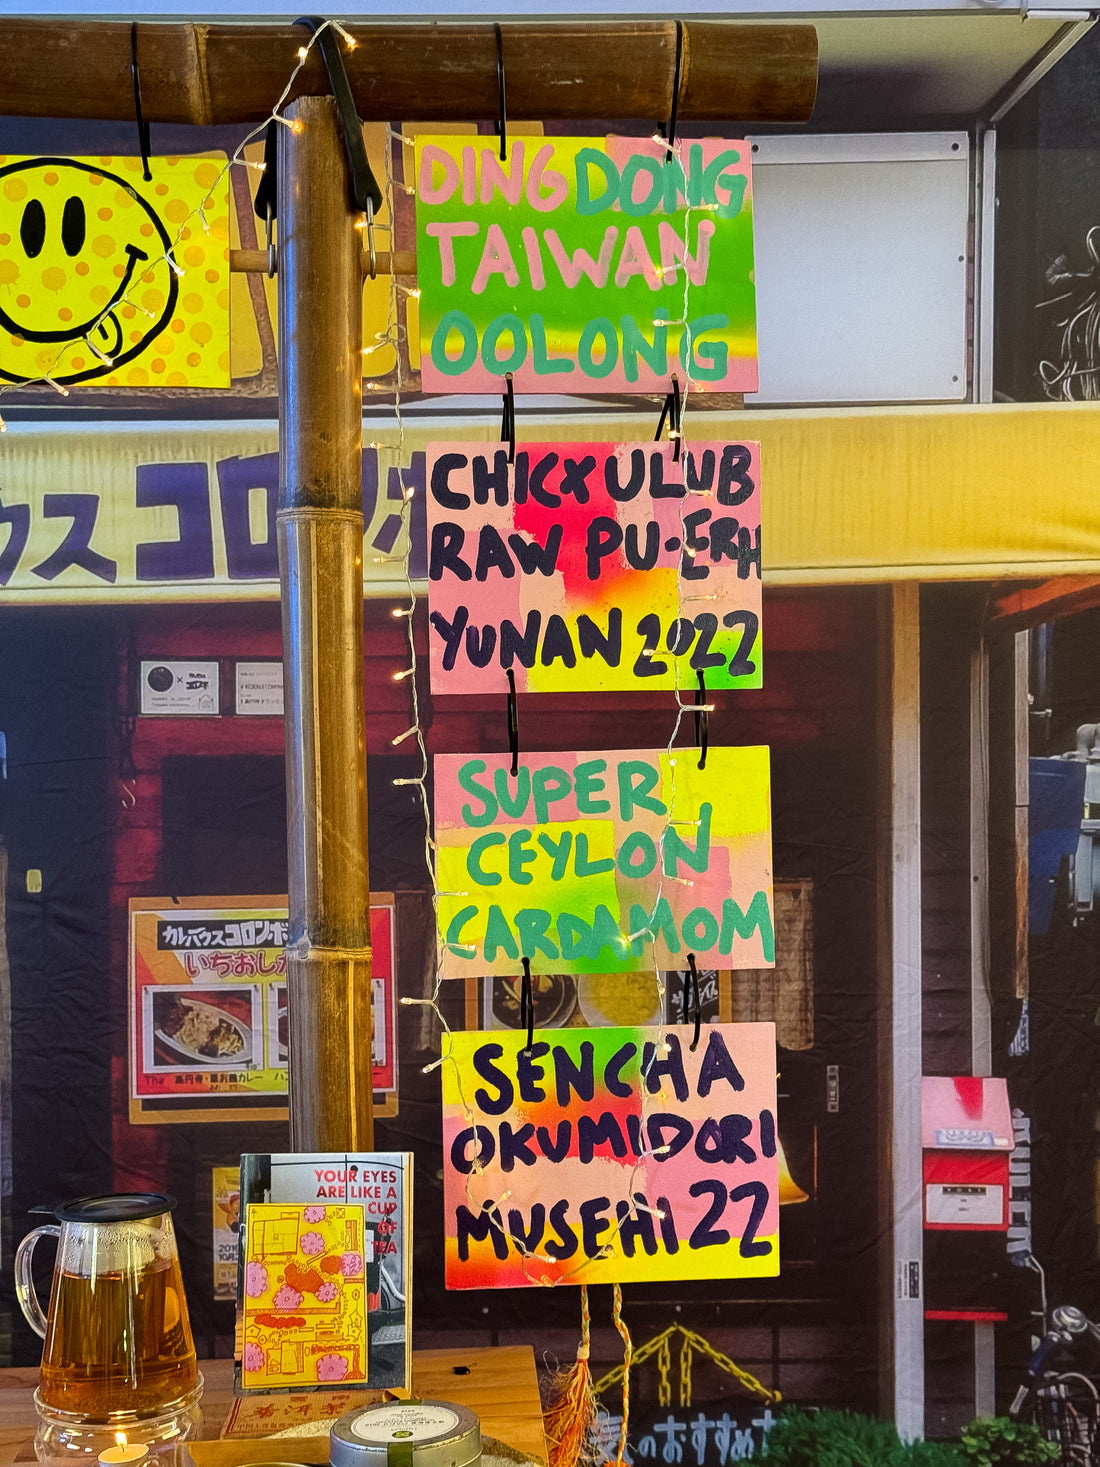 DING DONG
TAIWAN
OOLONG
CHICXULUB
RAW PU-ERH
YUNAN 2022
SUPER
CEYLON
CARDAMOM
SENCHA
OKUMIDORI
MUSEHI 22
ウスコロンボ
カレーハウスコロンボ
いちおし
YOUR EYES
ARE LIKE A
CUP
OF
TEA
のおすすめ